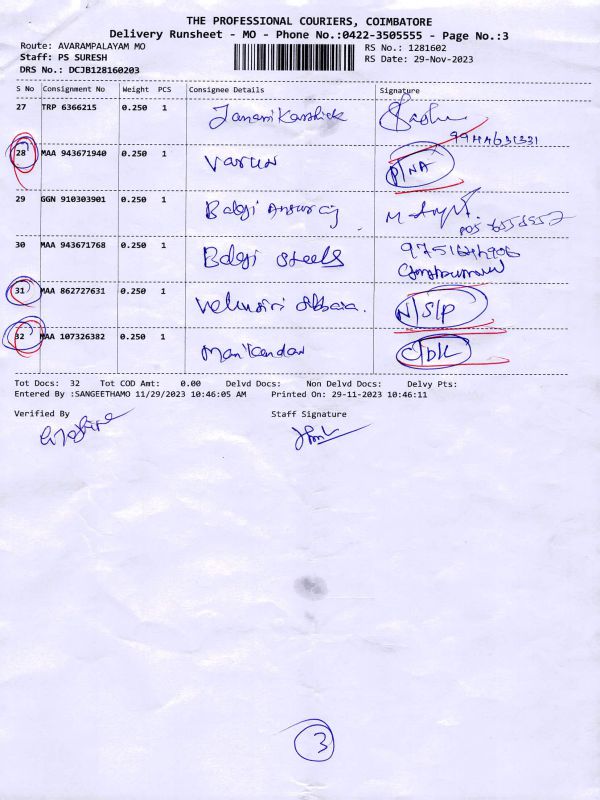 THE PROFESSIONAL COURIERS, COIMBATORE
Delivery Runsheet - MO - Phone No.:0422-3505555 - Page No.:3
Route: AVARAMPALAYAM MO
RS No.: 1281602
Staff: PS SURESH
RS Date: 29-Nov-2023
DRS No.: DCJB128160203
S No Consignment No Weight PCS Consignee Details Signature
27 TRP 6366215 0.250 1
28 MAA 943671940 0.250 1 Varun P/NA
29 GGN 910303901 0.250 1 Balaji
30 MAA 943671768 0.250 1 Balaji Steels
31 MAA 862727631 0.250 1 N/S/P
32 MAA 107326382 0.250 1 Manikandan C/D/L
Tot Docs: 32 Tot COD Amt: 0.00 Delvd Docs: Non Delvd Docs: Delvy Pts:
Entered By :SANGEETHAMO 11/29/2023 10:46:05 AM Printed On: 29-11-2023 10:46:11
Verified By Staff Signature
3